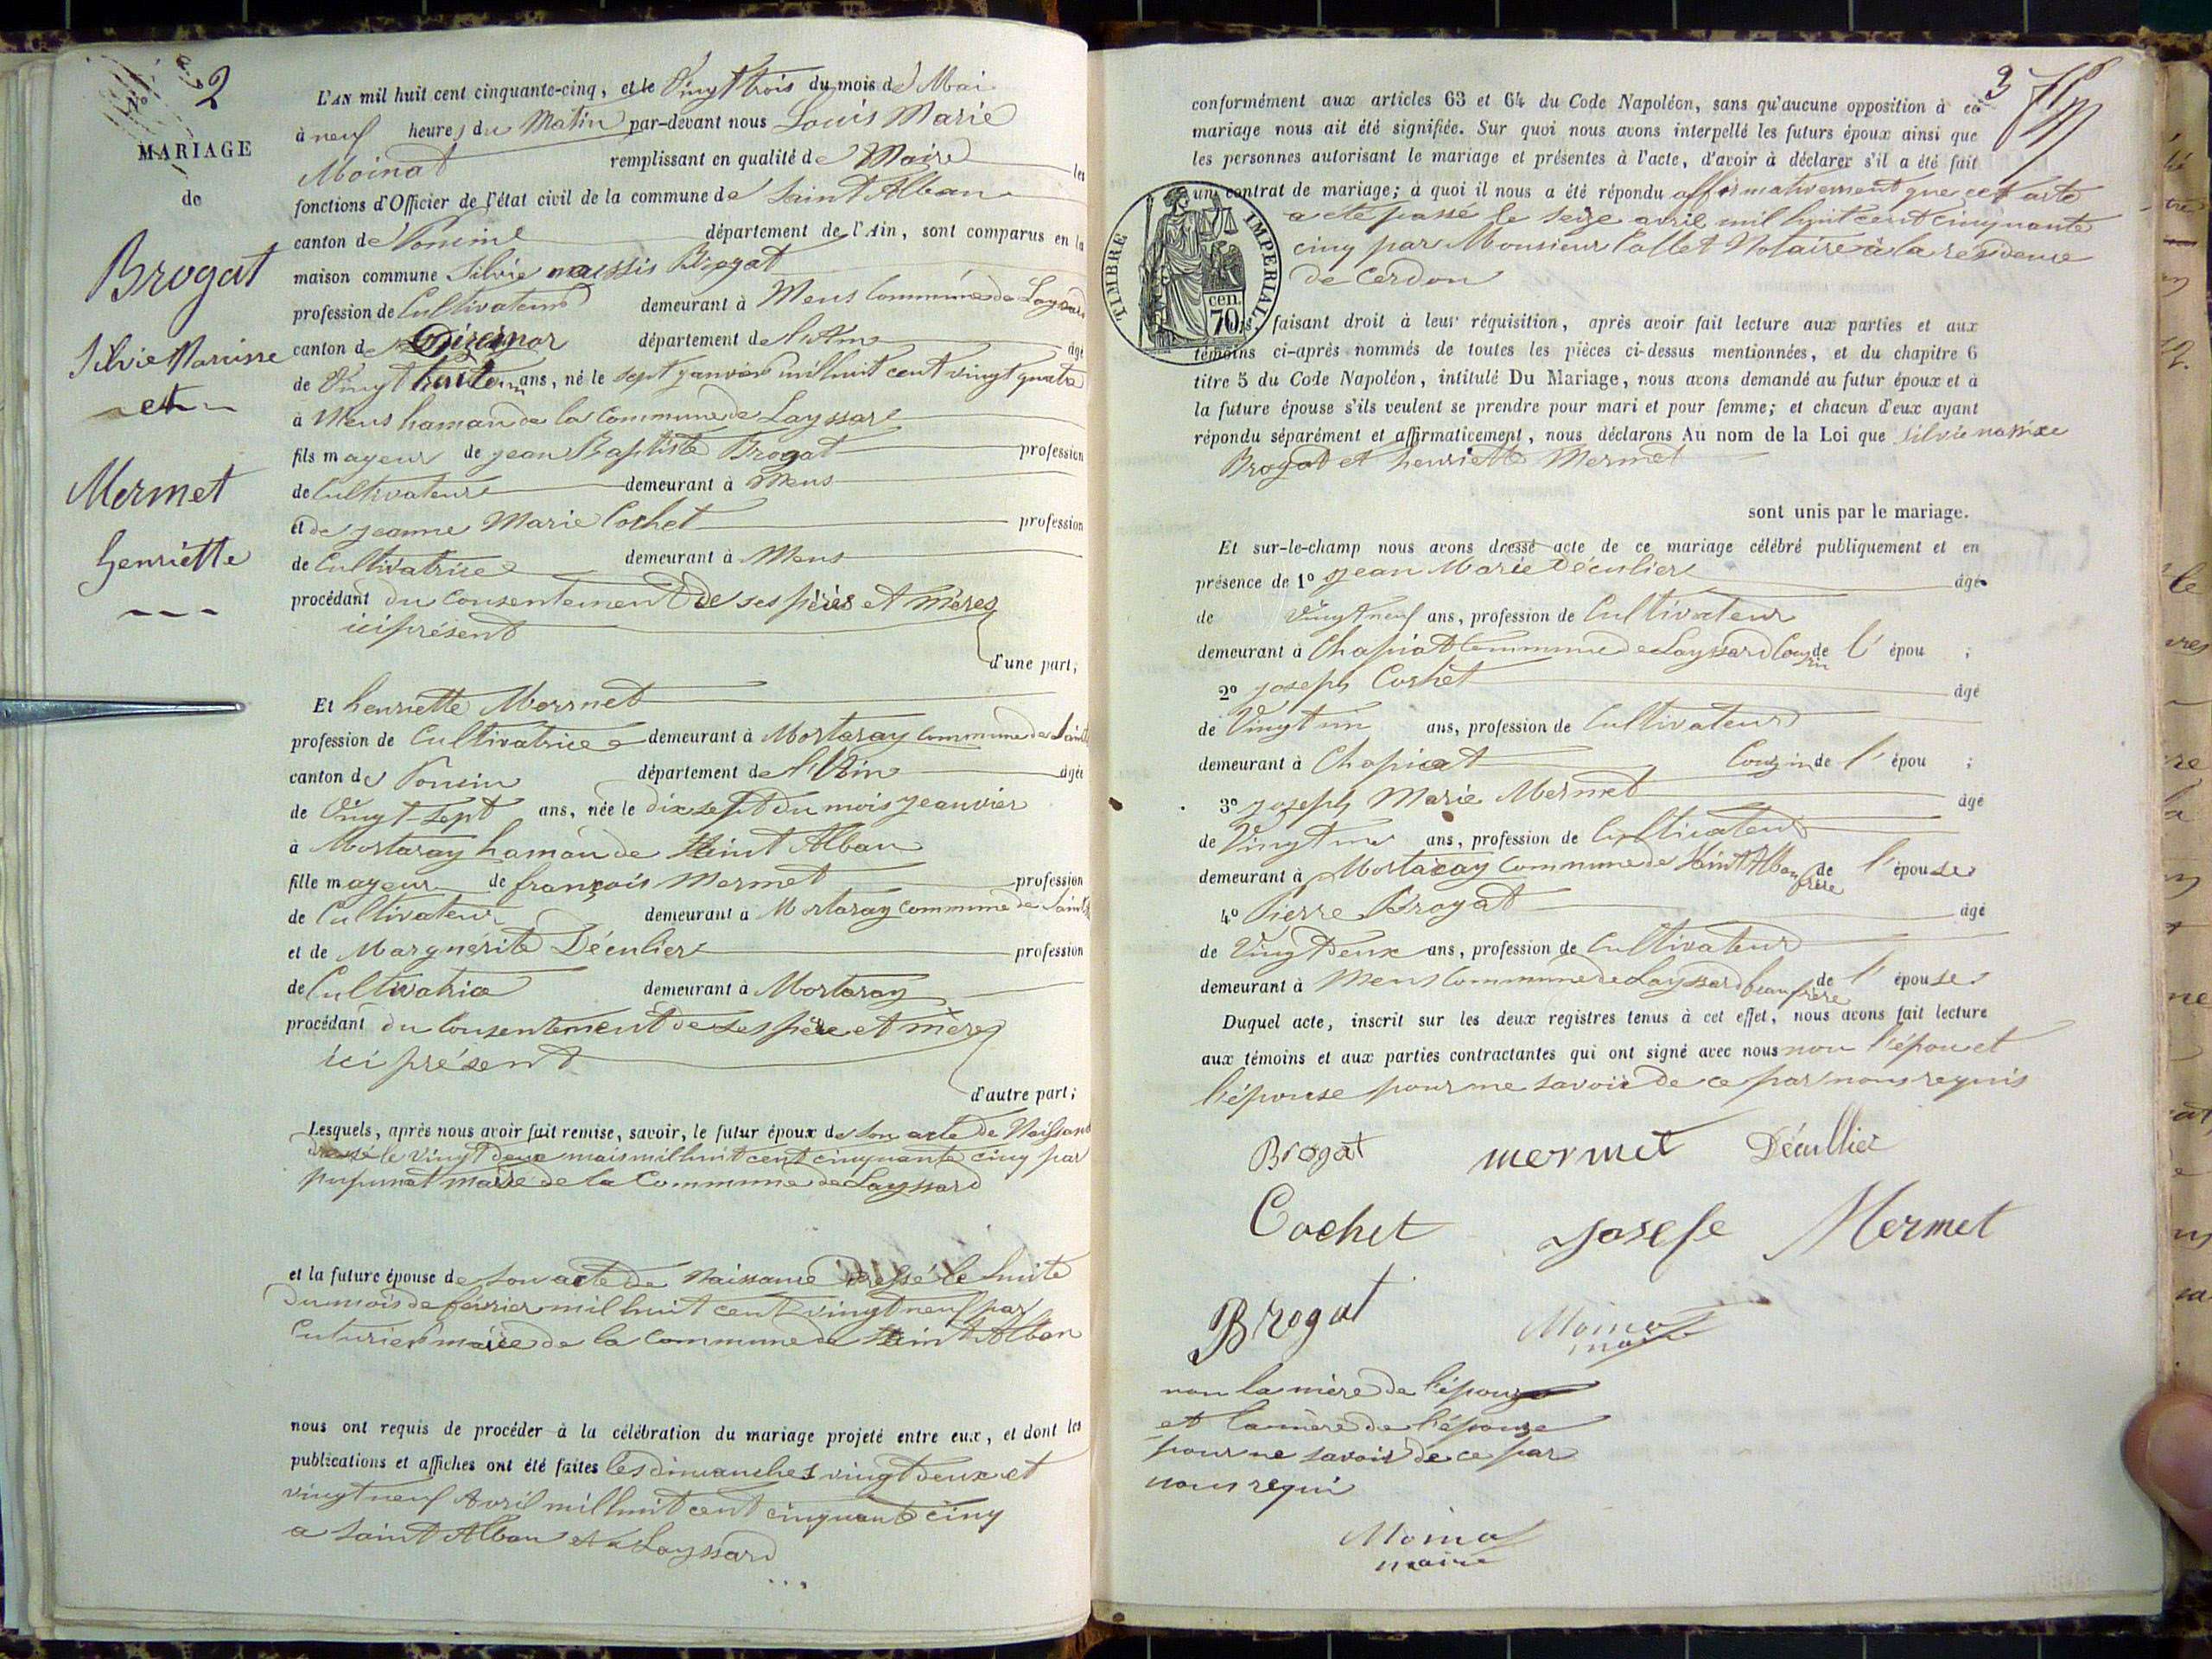 N° 2
MARIAGE
de
Brogat
Silvie Narcisse
et
Mermet
henriette
L'AN mil huit cent cinquante-cinq, et le Vingt trois du mois de Mai
à neuf heures du Matin par-devant nous Louis Marie
Moinat remplissant en qualité de Maire les
fonctions d'Officier de l'état civil de la commune de Saint Alban
canton de Poncin département de l'Ain, sont comparus en la
maison commune Silvie Brogat
profession de Cultivateur demeurant à Mens Commune de Layssard
canton d département de l'Ain âgé
de Vingt ans, né le sept janvier mil huit cent vingt quatre
à Mens haman de la Commune de Layssard
fils mayeur de jean Baptiste Brogat profession
de Cultivateur demeurant à Mens
et de jeanne Marie Cochet profession
de Cultivatrice demeurant à Mens
procédant du consentement de ses pères et mères
ici présent
d'une part;
Et henriette Mermet
profession de Cultivatrice demeurant à Mortaray commune de Saint
canton de Poncin département de l'Ain âgée
de Vingt-sept ans, née le dix sept du mois jeanvier
à Mortaray haman de Saint Alban
fille mayeur de françois Mermet profession
de Cultivateur demeurant à Mortaray commune de Saint
et de Marguerite Déculier profession
de Cultivatrice demeurant à Mortaray
procédant du Consentement de ses père et mère
ici présent
d'autre part;
Lesquels, après nous avoir fait remise, savoir, le futur époux de son acte de Naissance
dressé le vingt deux mais mil huit cent cinquante cinq par
maire de la Commune de Layssard
et la future épouse de son acte de Naissance Dressé le huite
du mois de février mil huit cent vingt neuf par
Cuturier maire de la Commune de Saint Alban
nous ont requis de procéder à la célébration du mariage projeté entre eux, et dont les
publications et affiches ont été faites les dimanches vingt deux et
vingt neuf Avril mil huit cent cinquante cinq
a Saint Alban et a Layssard
3
conformément aux articles 63 et 64 du Code Napoléon, sans qu'aucune opposition à ce
mariage nous ait été signifiée. Sur quoi nous avons interpellé les futurs époux ainsi que
les personnes autorisant le mariage et présentes à l'acte, d'avoir à déclarer s'il a été fait
un contrat de mariage; à quoi il nous a été répondu affirmativement que cet acte
a été passé le seize avril mil huit cent cinquante
cinq par Monsieur Collet Notaire à la résidence
de Cerdon
TIMBRE IMPERIAL
70 cen.
faisant droit à leur réquisition, après avoir fait lecture aux parties et aux
témoins ci-après nommés de toutes les pièces ci-dessus mentionnées, et du chapitre 6
titre 5 du Code Napoléon, intitulé Du Mariage, nous avons demandé au futur époux et à
la future épouse s'ils veulent se prendre pour mari et pour femme; et chacun d'eux ayant
répondu séparément et affirmativement, nous déclarons Au nom de la Loi que Silvie
Brogat et henriette Mermet
sont unis par le mariage.
Et sur-le-champ nous avons dressé acte de ce mariage célébré publiquement et en
présence de 1° jean Marie Déculier âgé
de Vingt neuf ans, profession de Cultivateur
demeurant à Chapiat Commune de Layssard Couzin de l'épou ;
2° joseph Cochet âgé
de Vingt un ans, profession de Cultivateur
demeurant à Chapiat Couzin de l'épou ;
3° joseph Marie Mermet âgé
de Vingt un ans, profession de Cultivateur
demeurant à Mortaray Commune de Saint Alban frère de l'épouse
4° Pierre Brogat âgé
de Vingt deux ans, profession de Cultivateur
demeurant à Mens Commune de Layssard beau frère de l'épouse
Duquel acte, inscrit sur les deux registres tenus à cet effet, nous avons fait lecture
aux témoins et aux parties contractantes qui ont signé avec nous non l'épou et
l'épouse pour ne savoir de ce par nous requis
Brogat mermet Décullier
Cochet josefe Mermet
Brogat Moinat
maire
non la mère de l'épouze
et la mère de l'épouze
pour ne savoir de ce par
nous requi
Moinat
maire